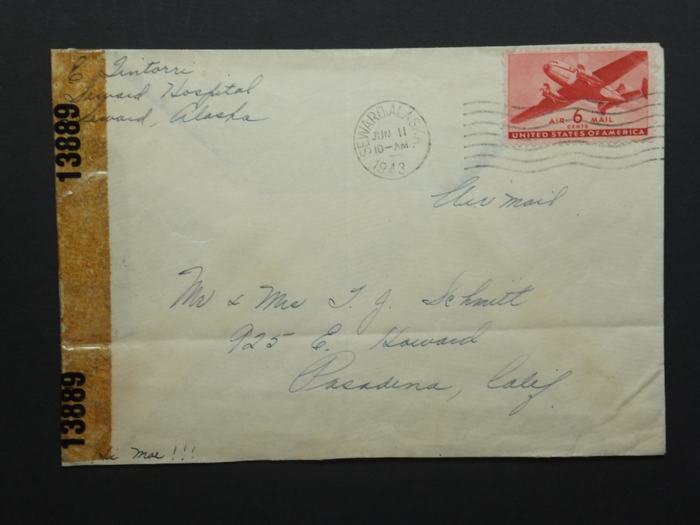 E Tintorri
Seward Hospital
Seward, Alaska
SEWARD, ALASKA
JUN 11
10-AM
1943
AIR 6 MAIL
CENTS
UNITED STATES OF AMERICA
Air mail
Mr & Mrs T. J. Schmitt
925 E. Howard
Pasadena, Calif
13889
13889
Hi Moe !!!